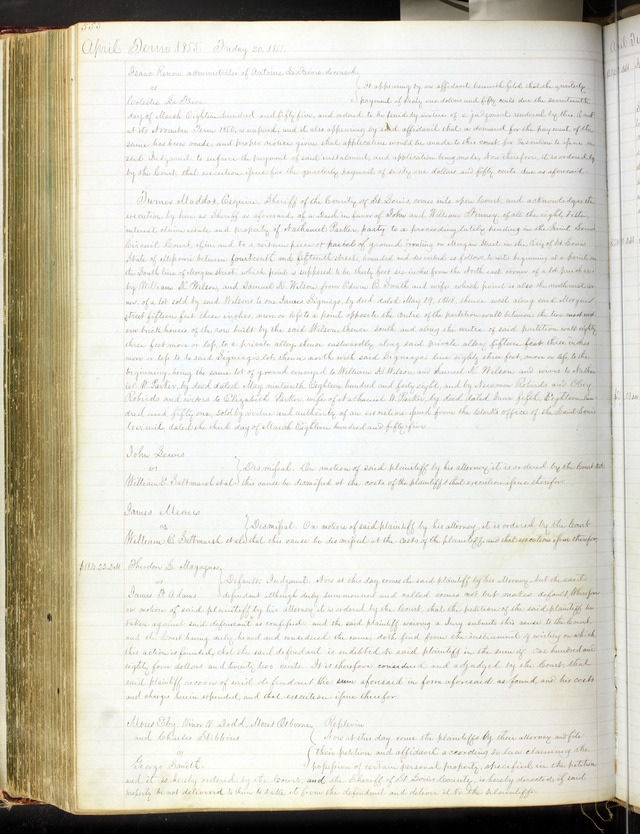 April Term 1855. Friday 20. 1855.
Isaac administrator of Antoine Le deceased
vs
Celeste Le
It appearing by an affidavit herewith filed that the quarterly
payment of sixty one dollars and fifty cents due the seventeenth
day of March Eighteen hundred and fifty five, and ordered to be paid by virtue of a judgment rendered by this Court
at its November Term 1850, is unpaid, and it also appearing by said affidavit that a demand for the payment of the
same has been made, and proper notice given that application would be made to this court for execution to issue on
said Judgment to enforce the payment of said instalment, and application being made, Now therefore, it is ordered by
by the Court that execution issue for the quarterly payment of sixty one dollars and fifty cents due as aforesaid
James Maddox Esquire, Sheriff of the County of St. Louis, comes into open Court, and acknowledges the
execution by him as Sheriff as aforesaid, of a Deed in favor of John and William of all the right, title
interest, claim estate and property of Nathaniel Parker party to a proceeding lately pending in the Saint Louis
Circuit Court, of in and to a certain piece or parcel of ground fronting on Morgan Street in the City of St. Louis
State of Missouri between fourteenth and fifteenth streets, bounded and described as follows, to wit: beginning at a point on
the South line of Morgan street, which point is supposed to be thirty feet six inches from the North east corner of a lot purchased
by William H. Wilson, and Samuel N. Wilson, from Edwin B. Smith and wife, which point is also the northwest cor
ner of a lot sold by said Wilsons to one James by deed dated May 19, 1848, thence west along said Morgan
street fifteen feet three inches, more or less to a point opposite the centre of the partition wall between the two most
ern brick houses of the row built by the said Wilson, thence South and along the centre of said partition wall eighty
three feet more or less, to a private alley, thence eastwardly along said private alley fifteen feet three inches
more or less to said lot, thence north with said line eighty three feet, more or less to the
beginning, being the same lot of ground conveyed to William H. Wilson and Samuel N. Wilson and wives to Nathan
iel W. Parker, by deed dated May nineteenth Eighteen hundred and forty eight, and by Roberds and
Roberds and sisters to Elizabeth Parker wife of Nathaniel W. Parker, by deed dated June fifth Eighteen hun
dred and fifty one, sold by virtue and authority of an execution issued from the Clerk's office of the Saint Louis
Circuit, dated the third day of March Eighteen hundred and fifty five.
John Lewis
vs
William C. Feltmarsh et al
Dismissal. On motion of said plaintiff by his attorney it is ordered by the Court that
this cause be dismissed at the costs of the plaintiff & that execution issue therefor
James Means
vs
William C. Feltmarsh et al
Dismissal. On motion of said plaintiff by his attorney, it is ordered by the Court
that this cause be dismissed at the costs of the plaintiff, and that execution issue therefor,
$184.22 Debt
Theodore L.
vs
James F. Adams
Default Judgment. Now at this day comes the said plaintiff by his attorney, but the said
defendant although duly summoned and called comes not but makes default Wherefore
on motion of said plaintiff by his attorney it is ordered by the Court, that the petition of the said plaintiff be
taken against said defendant as confessed and the said plaintiff waiving a Jury submits this cause to the Court
and the Court having duly heard and considered the same, doth find from the instrument of writing on which
this action is founded, that the said defendant is indebted to said plaintiff in the sum of One hundred and
eighty four dollars and twenty two cents. It is therefore considered and adjudged by the Court, that
said plaintiff recover of said defendant the sum aforesaid in form aforesaid as found, and his costs
and charges herein expended, and that execution issue therefor
Moses Eby, Dodd, Osborne
and Charles Stebbins
vs
George Smith.
Replevin
Now at this day come the plaintiffs by their attorney and file
their petition and affidavit according to law claiming the
possession of certain personal property specified in the petition
and it is hereby ordered by the Court, and the Sheriff of St Louis County, is hereby directed, if said
property be not delivered to him to take it from the defendant and deliver it to the plaintiffs.